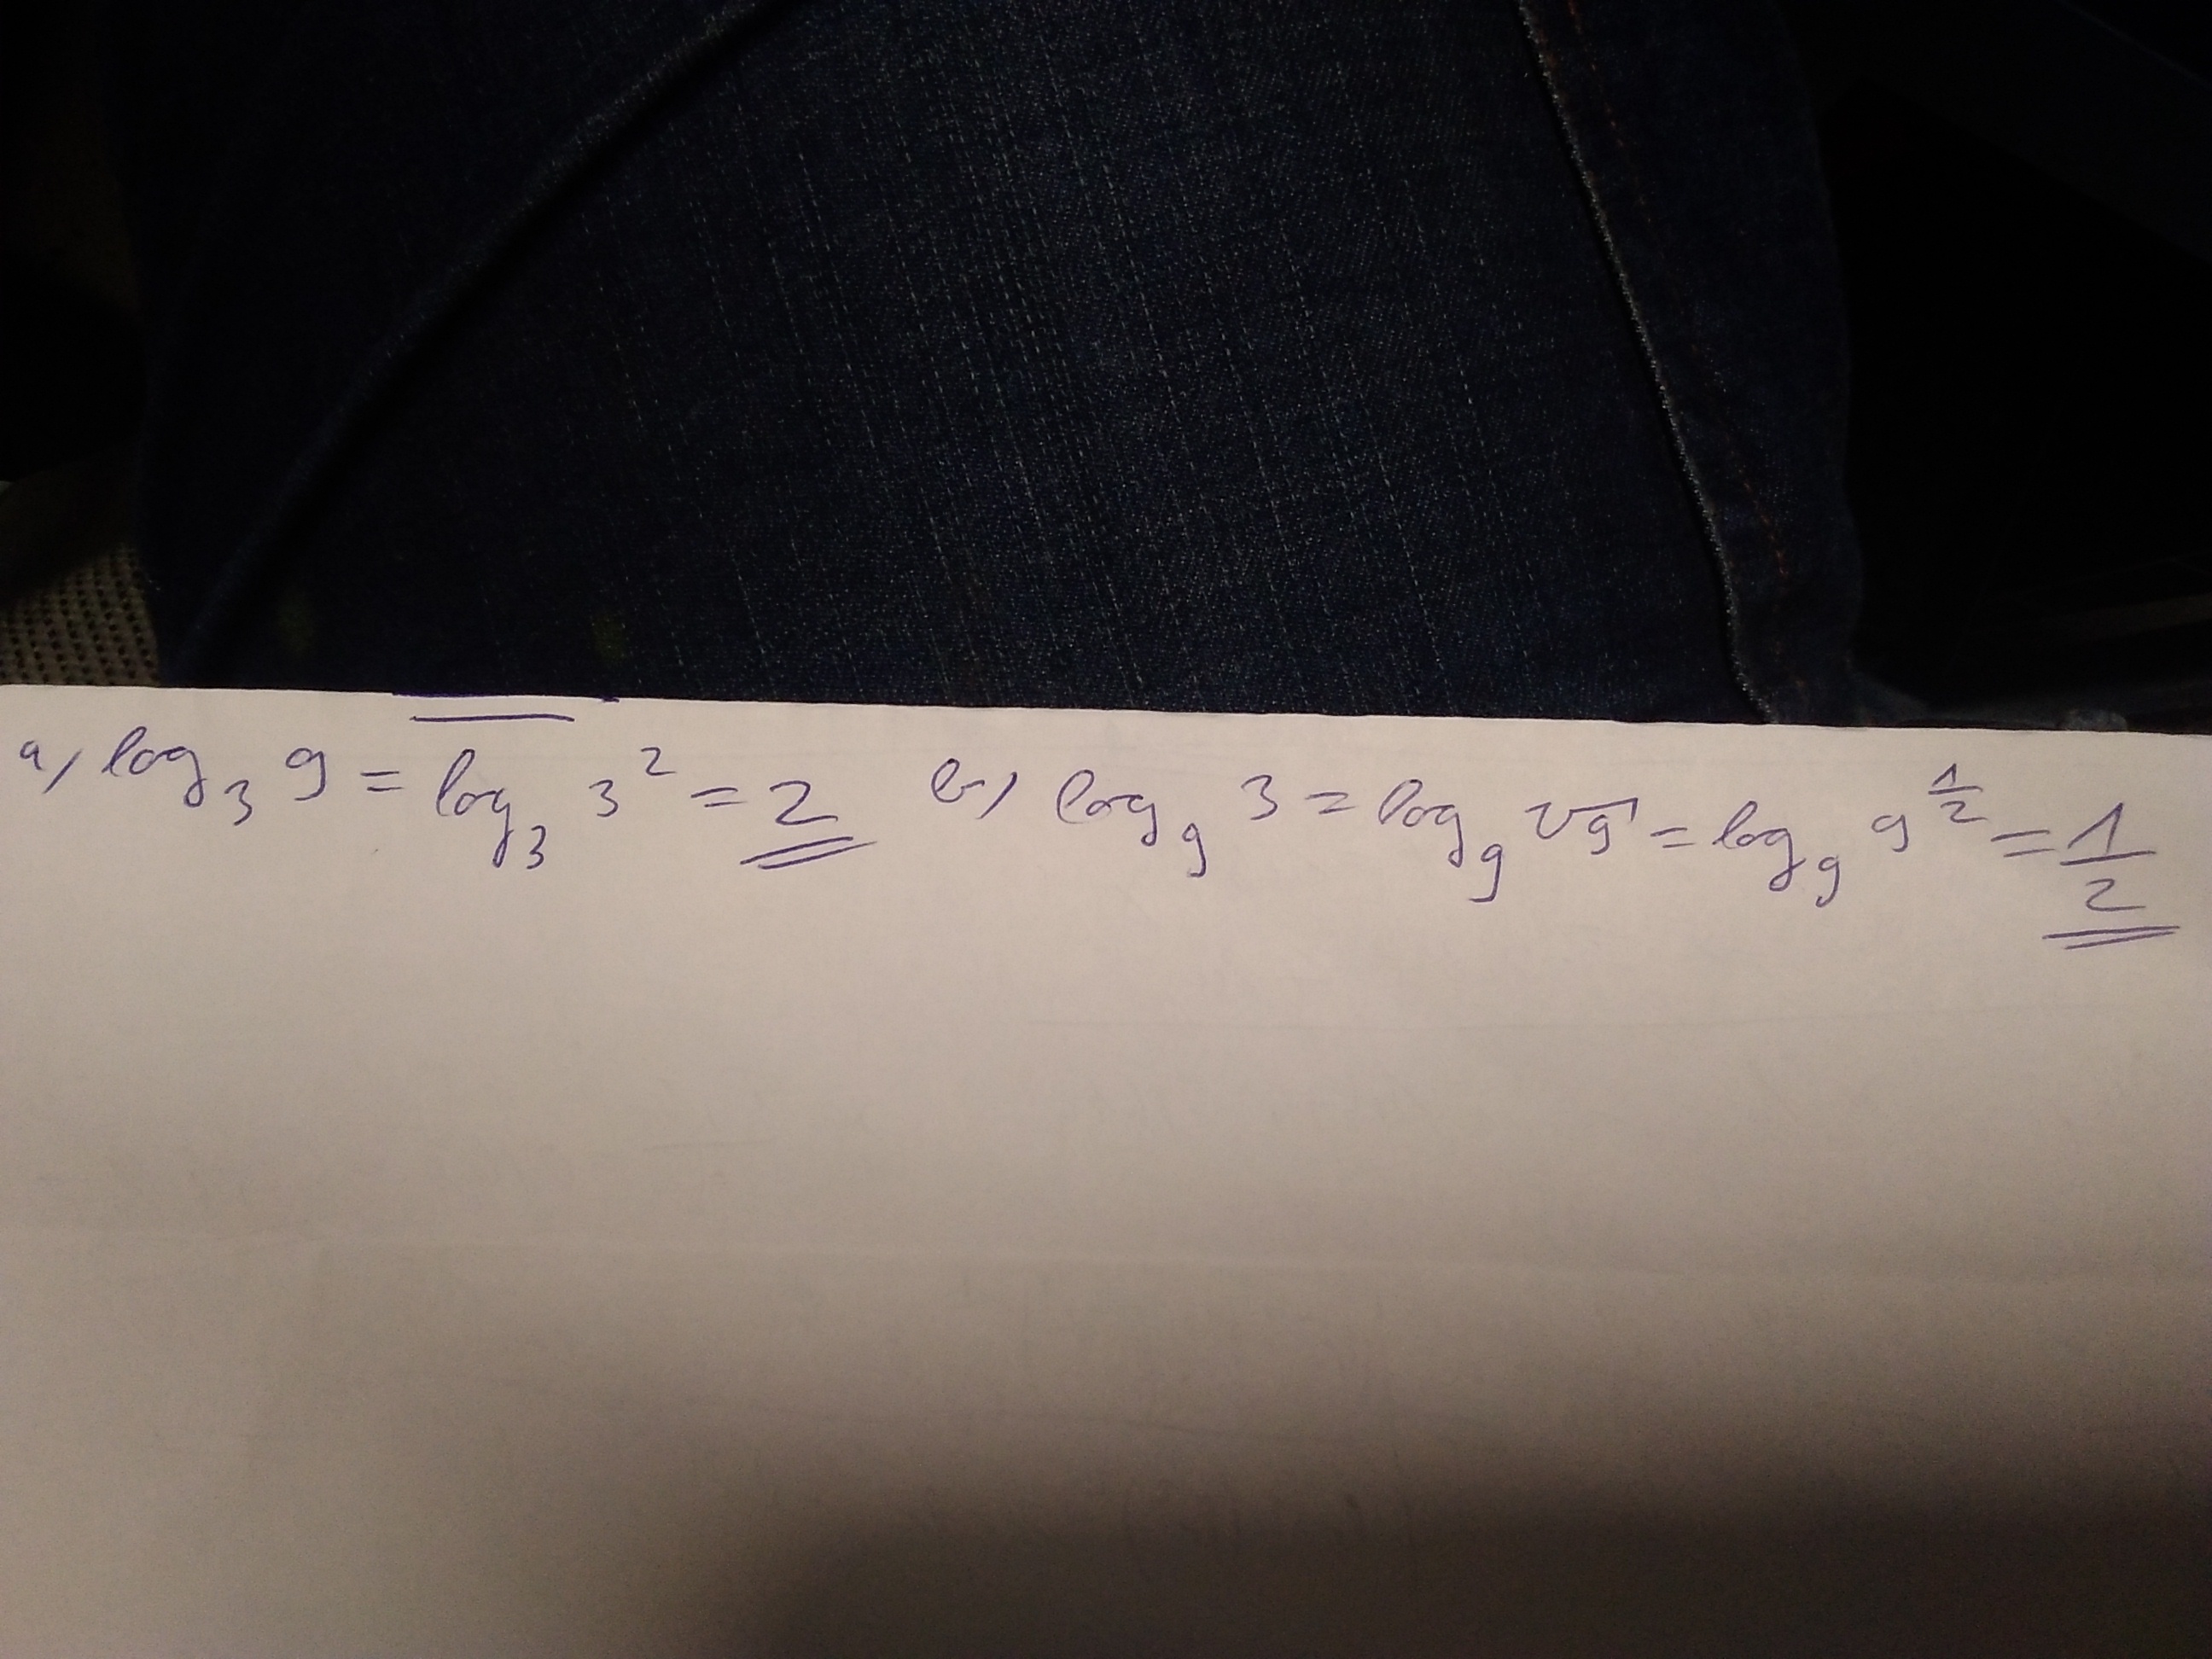 a, log₃ 9 = log₃ 3² = 2 b, log₉ 3 = log₉ √9 = log₉ 9^(1/2) = 1/2